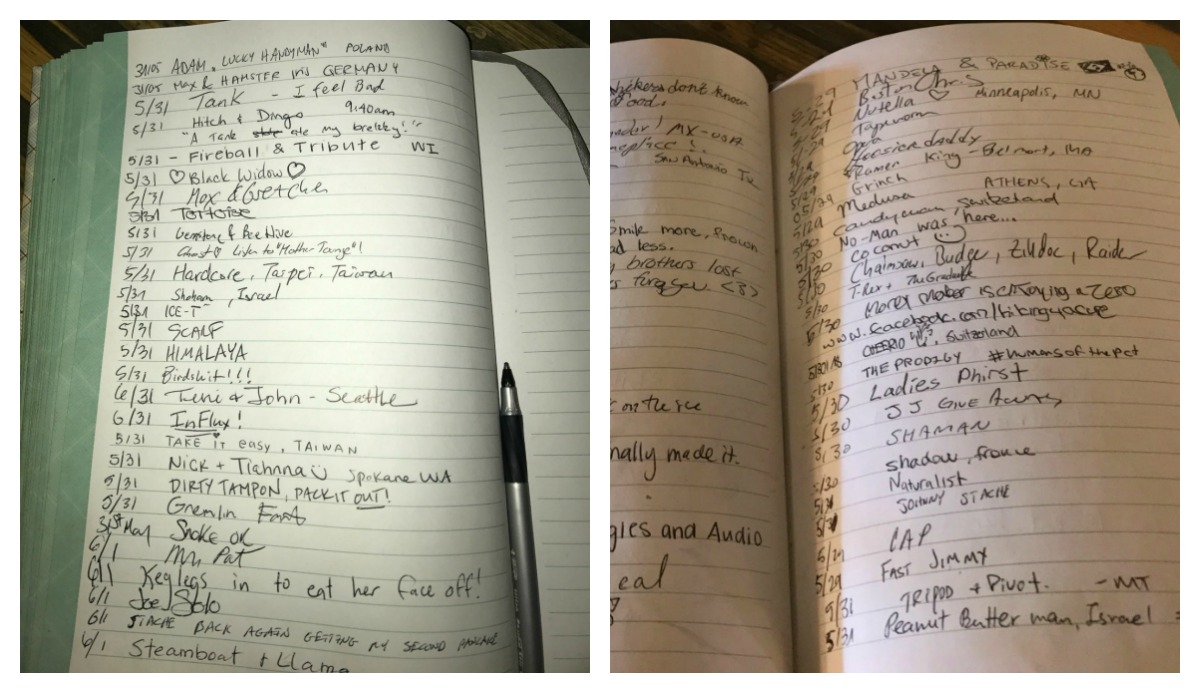 31/05 ADAM "LUCKY HANDYMAN" POLAND
31/05 MAX & HAMSTER GERMANY
5/31 Tank - I feel Bad
5/31 Hitch & Dingo 9:40am
"A Tank ate my brekky!"
5/31 - Fireball & Tribute WI
5/31 ♡ Black Widow ♡
5/31
5/31 Tortoise
5/31 & Bee Hive
5/31 Listen to "Mother Tongue"!
5/31 Hardcore, Taipei, Taiwan
5/31 Shoham, Israel
5/31 ICE-T
5/31 SCARF
5/31 HIMALAYA
5/31 Birdshit!!!
6/31 & John - Seattle
6/31 InFlux!
5/31 TAKE it easy, TAIWAN
5/31 Nick + Tiahnna Spokane WA
5/31 DIRTY TAMPON, PACK IT OUT!
5/31 Gremlin
31st May Snake
6/1 Mr. Pat
6/1 Keglegs in to eat her face off!
6/1 Joe
6/1 STACHE BACK AGAIN GETTING MY SECOND
6/1 Steamboat + Llama
hikers don't know
MX - UOR
San Antonio Tx
Smile more, frown
less.
brothers lost
<3)
on the ice
nally made it.
gles and Audio
eal
MANDELA & PARADISE
5/29 Boston Chris
Nutella ♡ Minneapolis, MN
5/29 Tapeworm
5/29
Hoosierdaddy
Ramen King - Belmont, MA
5/29 Grinch
05/29 Medusa ATHENS, GA
5/29 Candyman, Switzerland
5/30 No-Man was here...
5/30 coconut
5/30 Chainsaw, Budge, Zildoc, Raider
T-Rex + The Graduate
5/30 Money Maker is a Zero
www.facebook.com/
CHEERIO, Switzerland
THE PRODIGY #humansofthepct
5/30 Ladies Phirst
5/30 JJ GIVE AWAY
5/30 SHAMAN
5/30 shadow, france
5/30 Naturalist
JOHNNY STACHE
CAP
5/29 FAST JIMMY
TRIPOD + Pivot. - MT
5/31 Peanut Butter man, Israel